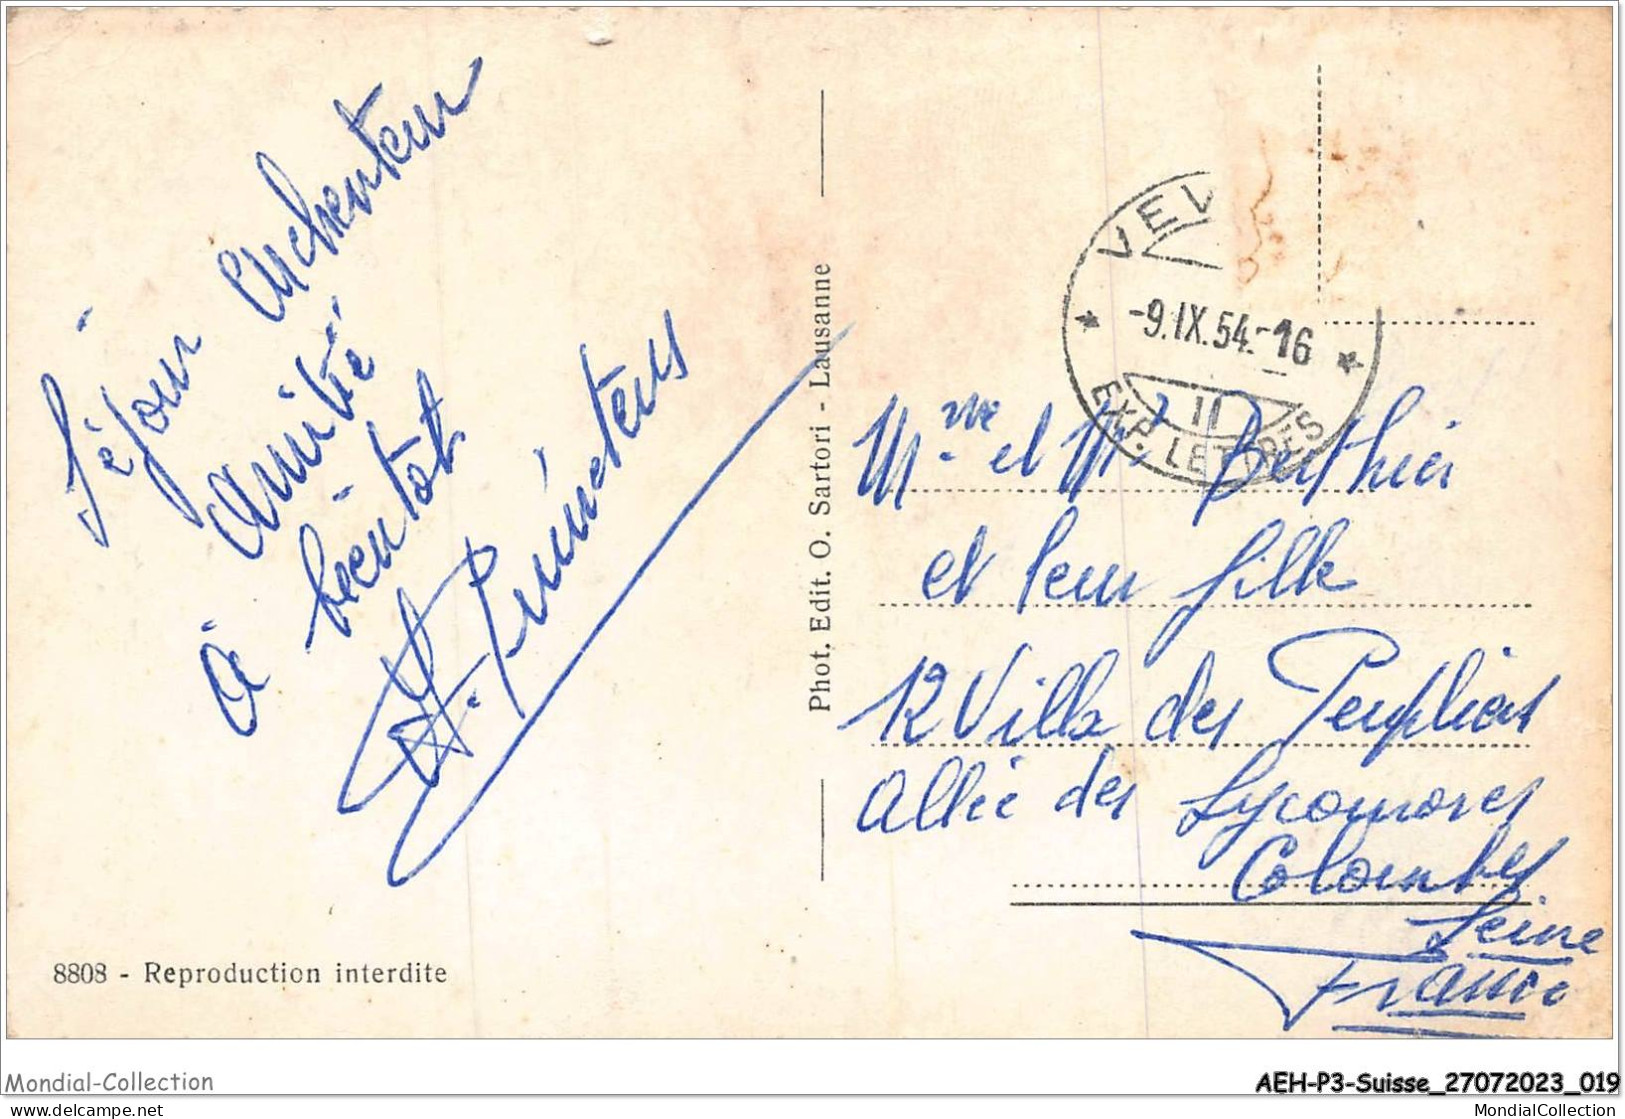 Séjour enchenteur
amitié
à bientot
Phot. Edit. O. Sartori - Lausanne
8808 - Reproduction interdite
VEV
-9.IX.54.-16
11
EXP. LETTRES
Mme et Mr Berthier
et leur fille
12 Villa des Peupliers
Allée des Sycomores
Colombes
Seine
France
Mondial-Collection
AEH-P3-Suisse_27072023_019
www.delcampe.net
MondialCollection